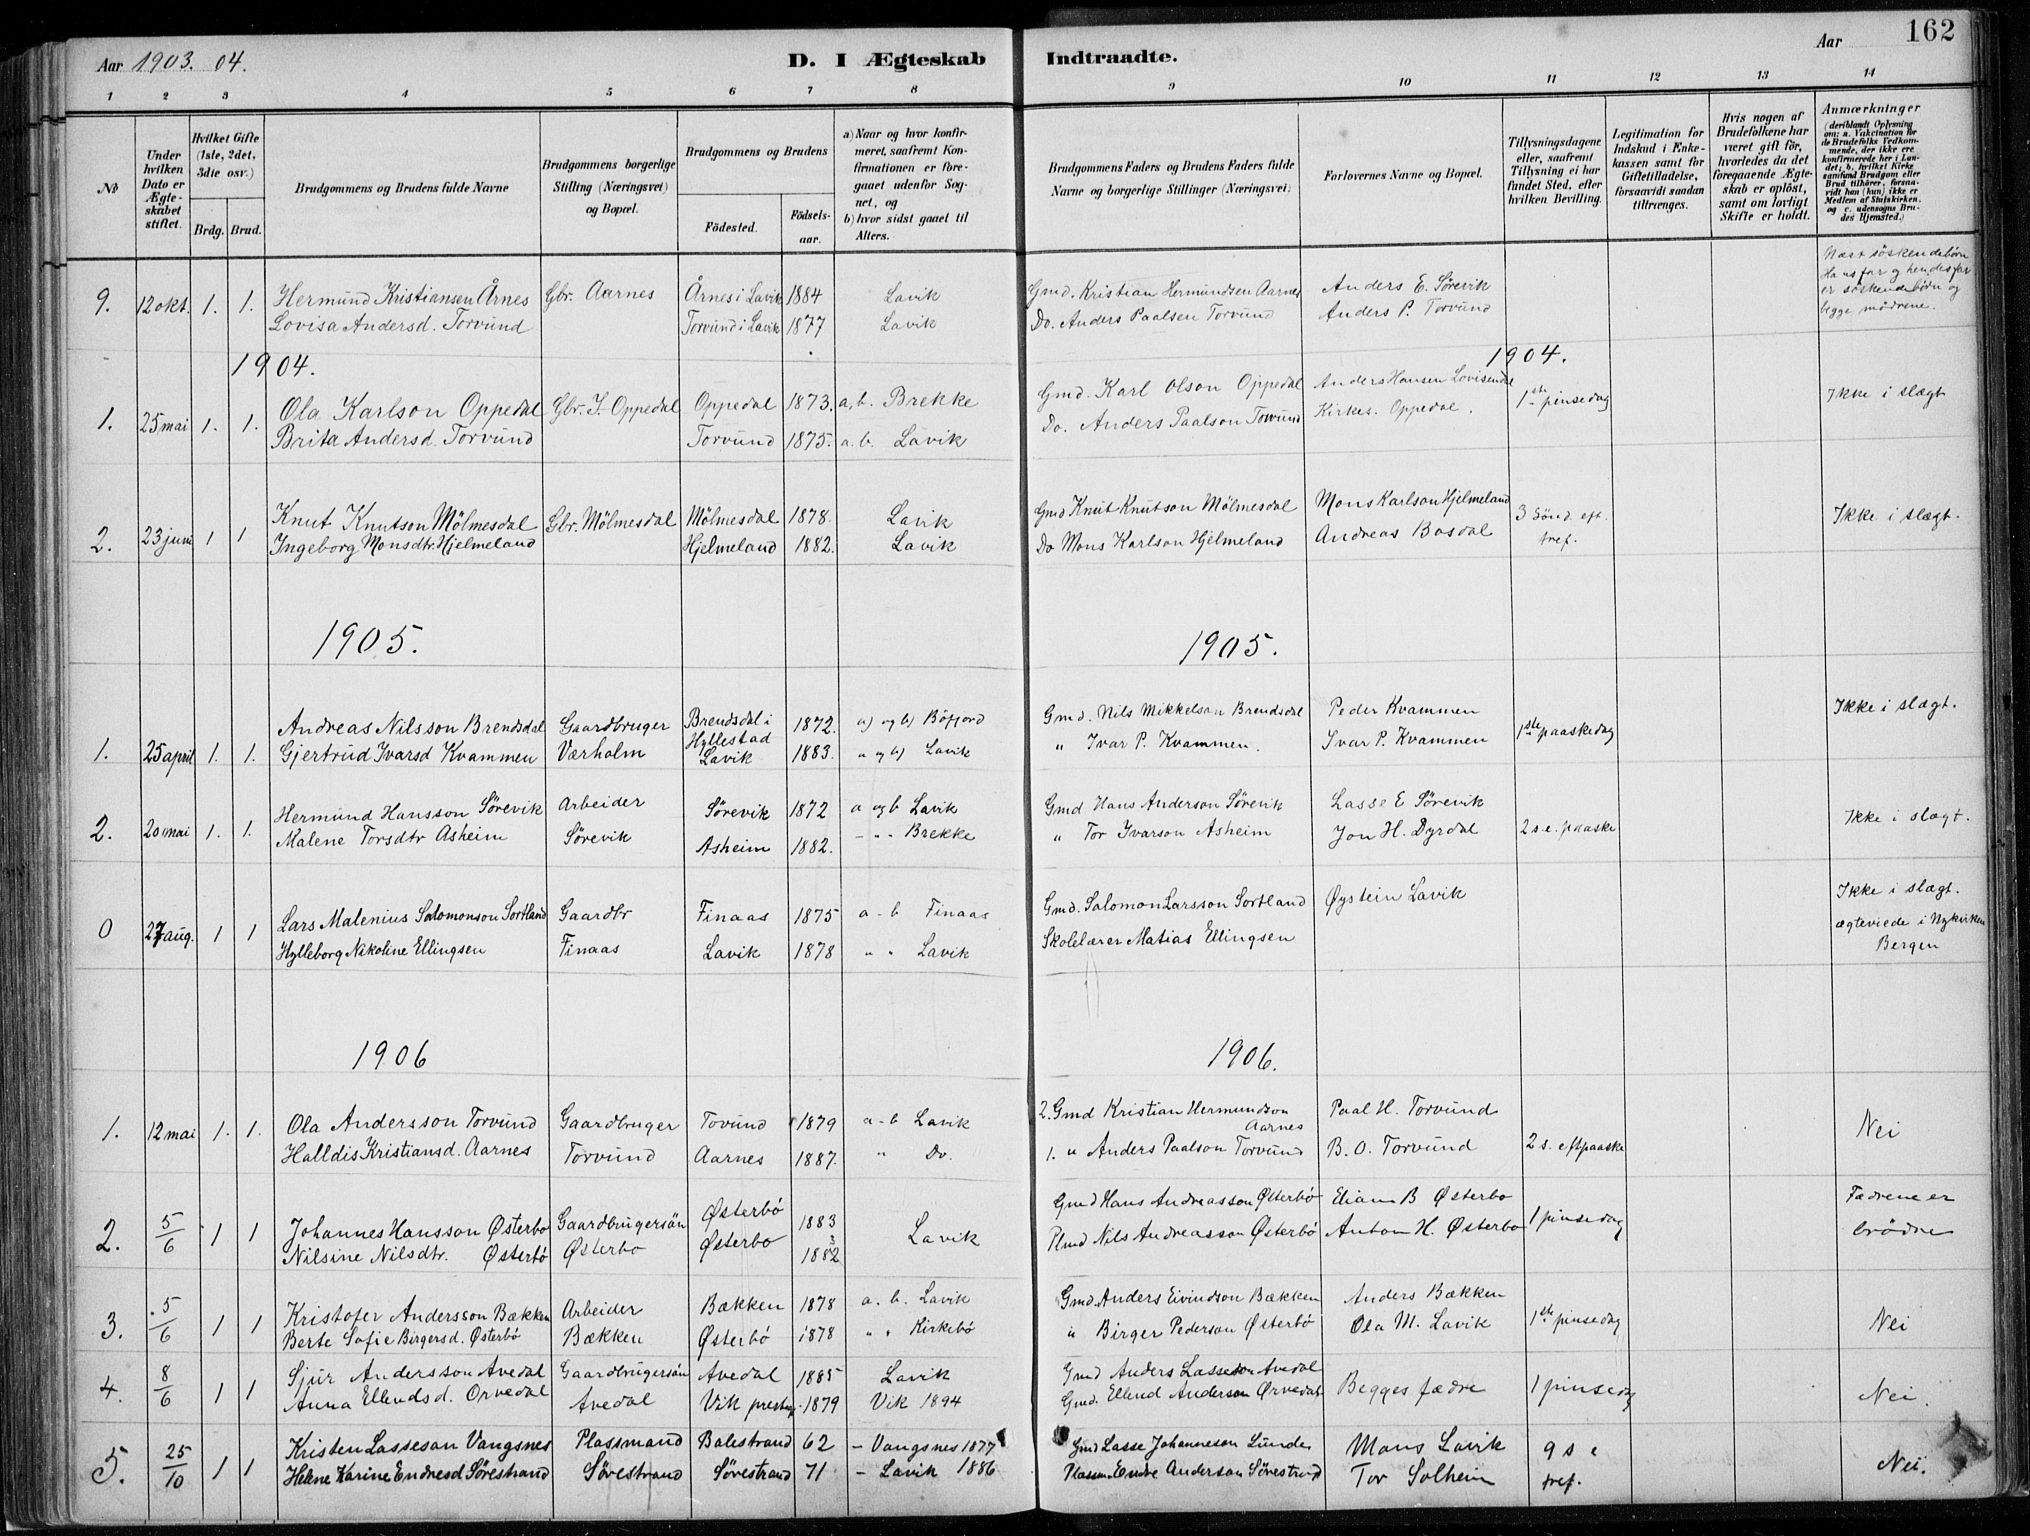 162
Aar 1903. 04.
D. I Ægteskab Indtraadte.
Aar
1 2 3 4 5 6 7 8 9 10 11 12 13 14
No
Under hvilken Dato er Ægteskabet stiftet.
Hvilket Gifte (1ste, 2det, 3die osv.)
Brdg. Brud.
Brudgommens og Brudens fulde Navne
Brudgommens borgerlige Stilling (Næringsvei) og Bopæl.
Brudgommens og Brudens
Födested.
Födselsaar.
a) Naar og hvor konfirmeret, saafremt Konfirmationen er foregaaet udenfor Sognet, og
b) hvor sidst gaaet til Alters.
Brudgommens Faders og Brudens Faders fulde Navne og borgerlige Stillinger (Næringsvei)
Forlovernes Navne og Bopæl.
Tillysningsdagene eller, saafremt Tillysning ei har fundet Sted, efter hvilken Bevilling.
Legitimation for Indskud i Enkekassen samt for Giftetilladelse, forsaavidt saadan tiltrænges.
Hvis nogen af Brudefolkene har været gift för, hvorledes da det foregaaende Ægteskab er oplöst, samt om lovligt Skifte er holdt.
Anmærkninger
(deriblandt Oplysning om: a. Vakcination for de Brudefolks Vedkommende, der ikke ere konfirmerede her i Landet; b. hvilket Kirkesamfund Brudgom eller Brud tilhörer, forsaavidt han (hun) ikke er Medlem af Statskirken, og c. udensogns Brudes Hjemsted.)
9. 12 okt. 1. 1. Hermund Kristiansen Årnes Gbr. Aarnes Årnes i Lavik 1884 Lavik Gmd. Kristian Hermundsen Aarnes Anders E. Sörevik
Lovisa Andersd. Torvund Torvund i Lavik 1877 Lavik Do. Anders Paalsen Torvund Anders P. Torvund
Næst söskendebörn
Hans far og hendes far
er söskendebörn og
begge mödrene.
1904. 1904.
1. 25 mai 1. 1. Ola Karlson Oppedal Gbr. I. Oppedal Oppedal 1873. a, b. Brekke Gmd. Karl Olson Oppedal Anders Hansen Lovisendal 1ste pinsedag Ikke i slægt
Brita Andersd. Torvund Torvund 1875. a. b. Lavik Do. Anders Paalson Torvund Kirkes. Oppedal.
2. 23 juni 1 1 Knut Knutson Mölmesdal Gbr. Mölmesdal Mölmesdal 1878. Lavik Gmd Knut Knutson Mölmesdal Mons Karlson Hjelmeland 3 Sönd. eft. Ikke i slægt.
Ingeborg Monsdtr. Hjelmeland Hjelmeland 1882. Lavik Do Mons Karlson Hjelmeland Andreas Bosdal tref.
1905. 1905.
1. 25 april 1. 1. Andreas Nilsson Brendsdal Gaardbruger Brendsdal i Hyllestad 1872. a) og b) Böfjord Gmd. Nils Mikkelson Brendsdal Peder Kvammen 1ste paaskedag Ikke i slægt.
Gjertrud Ivarsd Kvammen Værholm Lavik 1883. " og b) Lavik " Ivar P. Kvammen. Ivar P. Kvammen
2. 20 mai 1. 1. Hermund Hansson Sörevik Arbeider Sörevik 1872 a og b Lavik Gmd Hans Anderson Sörevik Lasse E Sörevik Ikke i slægt.
Malene Torsdtr Asheim Sörevik Asheim 1882. - " - Brekke " Tor Ivarson Asheim Jon H. Dyrdal 2 s. e. paaske
0 27 aug. 1 1 Lars Malenius Salomonson Sortland Gaardbr Finaas 1875 a - b Finaas Gmd. Salomon Larsson Sortland Øystein Lavik Ikke i slægt.
Hylleborg Nikoline Ellingsen Finaas Lavik 1878 " " Lavik Skolelærer Matias Ellingsen ægteviede i Nykirken
Bergen
1906 1906.
1. 12 mai 1. 1. Ola Andersson Torvund Gaardbruger Tovund 1879 a - b Lavik 2. Gmd Kristian Hermundson Aarnes Paal H. Torvund Nei
Halldis Kristiansd. Aarnes Torvund Aarnes 1887. " Do. 1. " Anders Paalson Torvund B. O. Torvund 2 s. eft paaske
2. 5/6 1 1 Johannes Hansson Østerbö Gaardbrugersön Østerbö 1883 Lavik Gmd Hans Andreasson Østerbö Elian B Østerbo 1 pinsedag Fædrene er
Nilsine Nilsdtr. Østerbö Østerbo Østerbo 1882 Plmd Nils Andreasson Østerbö Anton H. Østerbo brödre
3. 5/6 1 1 Kristofer Andersson Bækken Arbeider Bækken 1878 a. b. Lavik Gmd. Anders Eivindson Bækken Anders Bækken 1ste pinsedag Nei
Berte Sofie Birgersd. Østerbö Bækken Østerbö 1878 " " Kirkebö " Birger Pederson Østerbö Ola M. Lavik
4. 8/6 1 1 Sjur Andersson Avedal Gaardbrugersön Avedal 1885 Lavik Gmd Anders Lasseson Avedal Begges fædre 1 pinsedag Nei.
Anna Ellendsd. Orvedal Avedal Vik prestegj. 1879 Vik 1894 Gmd. Ellend Anderson Ørvedal
5. 25/10 1 1 Kristen Lasseson Vangsnes Plassmand Balestrand 62 - Vangsnes 1877 Gmd Lasse Johanneson Lunde Mons Lavik 9 s e Nei.
Helene Karine Endresd Sörestrand Sörestrand Sörestrand 71 - Lavik 1886 Plassm. Endre Anderson Sörestrand Tor Solheim tref.